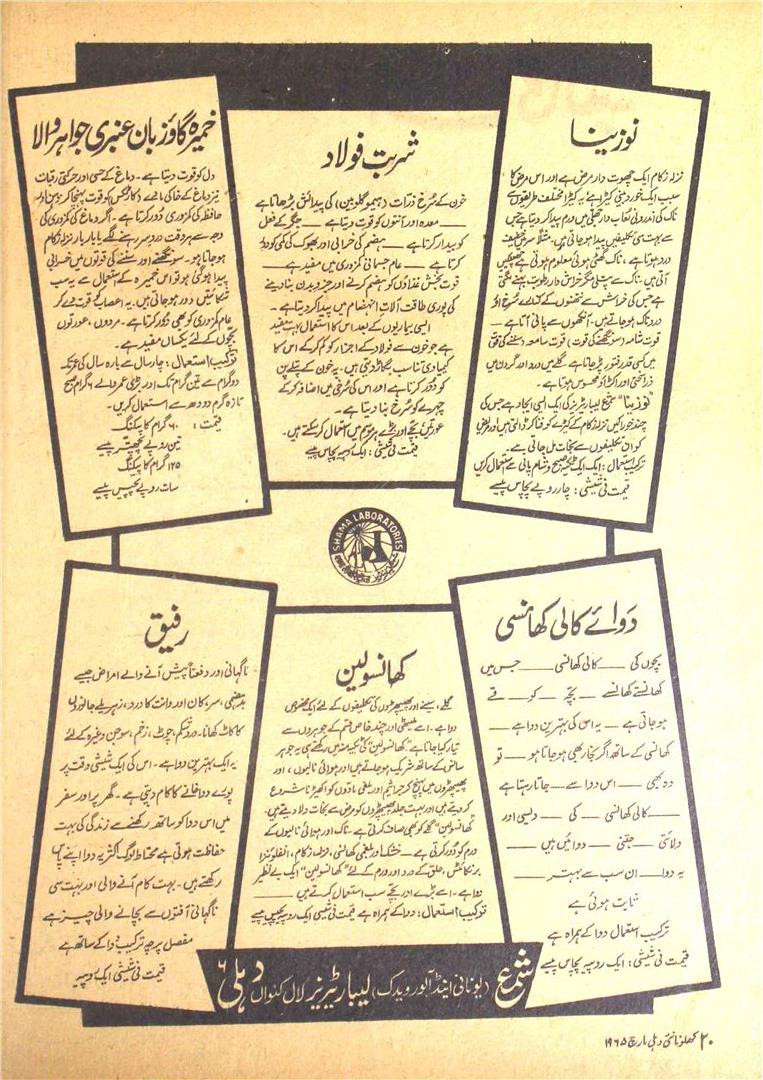 نوزینا
نزلہ زکام ایک چھوت دار مرض ہے اور اس مرض کا
سبب ایک خوردبینی کیڑا ہے یہ کیڑا مختلف طریقوں سے
ناک کی اندرونی لعاب دار جھلی میں ورم پیدا کر دیتا ہے جس
سے بہت سی تکلیفیں پیدا ہو جاتی ہیں۔ مثلاً سر میں خفیف
درد ہوتا ہے، ناک گھٹی ہوئی معلوم ہوتی ہے چھینکیں
آتی ہیں، ناک سے پتلی مگر خراش دار رطوبت بہنے لگتی
ہے جس کی خراش سے نتھنوں کے کنارے سرخ اور
دردناک ہو جاتے ہیں۔ آنکھوں سے پانی آتا ہے ــــ
قوت شامہ (سونگھنے کی قوت) قوت سامعہ (سننے کی قوت)
میں کسی قدر فتور پڑ جاتا ہے۔ گلے میں درد اور گردن میں
ذرا سختی اور اکڑاؤ محسوس ہوتا ہے۔
"نوزینا" شمع لیبارٹریز کی ایک ایسی ایجاد ہے جس کی
چند خوراکیں نزلہ زکام کے کیڑے کو فنا کر ڈالتی ہیں اور مریض
کو ان تکلیفوں سے نجات مل جاتی ہے۔
ترکیب استعمال: ایک ایک ٹکیہ صبح و شام پانی سے استعمال کریں
قیمت فی شیشی: چار روپے پچاس پیسے
شربت فولاد
خون کے سرخ ذرات (ہیموگلوبین) کی پیدائش بڑھاتا ہے
ــــ معدہ اور آنتوں کو قوت دیتا ہے ــــ جگر کے فعل
کو بیدار کرتا ہے ــــ ہضم کی خرابی اور بھوک کی کمی کو دور
کرتا ہے ــــ عام جسمانی کمزوری میں مفید ہے
قوت بخش غذاؤں کو ہضم کرنے اور جزو بدن بنا دینے
کی پوری طاقت آلات انہضام میں پیدا کر دیتا ہے۔
ایسی بیماریوں کے بعد اس کا استعمال بہت مفید
ہے جو خون سے فولاد کے اجزاء کو کم کر کے اس کا
کیمیاوی تناسب بگاڑ دیتی ہیں۔ یہ خون کے پتلے پن
کو دور کرتا ہے اور اس کی سرخی میں اضافہ کر کے
چہرے کو سرخ بنا دیتا ہے۔
عورتیں، بچے اور بڑے ہر موسم میں استعمال کر سکتے ہیں۔
قیمت فی شیشی: ایک روپیہ پچاس پیسے
خمیرہ گاؤزبان عنبری جواہر والا
دل کو قوت دیتا ہے۔ دماغ کے حسی اور حرکتی رقبات
نیز دماغ کے خاکی مادے (کارٹکس) کو قوت پہنچا کر ذہن اور
حافظہ کی کمزوری دور کرتا ہے۔ اگر دماغ کی کمزوری کی
وجہ سے ہر وقت درد سر رہنے لگے یا بار بار نزلہ زکام
ہو جاتا ہو۔ سونگھنے اور سننے کی قوتوں میں خرابی
پیدا ہو گئی ہو تو اس خمیرہ کے استعمال سے یہ سب
شکایتیں دور ہو جاتی ہیں۔ یہ اعصاب کو قوت دے کر
عام کمزوری کو بھی دور کرتا ہے۔ مردوں، عورتوں
بچوں کے لئے یکساں مفید ہے۔
ترکیب استعمال: چار سال سے بارہ سال کی عمر تک
دو گرام سے تین گرام تک اور بڑی عمر والے ۶ گرام صبح
تازہ گرم دودھ سے استعمال کریں۔
قیمت: ۶۰ گرام کا پیکنگ
تین روپے پچھتر پیسے
۱۲۵ گرام کا پیکنگ
سات روپے پچیس پیسے
SHAMA LABORATORIES
دوائے کالی کھانسی
بچوں کی ــــ کالی کھانسی ــــ جس میں
کھانستے کھانستے ــــ بچے ــــ کو ــــ قے
ہو جاتی ہے ــــ یہ اس کی بہترین دوا ہے ــــ
کھانسی کے ساتھ اگر بخار بھی ہو جاتا ہو ــــ تو
وہ بھی ــــ اس دوا سے ــــ جاتا رہتا ہے
ــــ کالی کھانسی ــــ کی ــــ دیسی اور
ولائتی ــــ جتنی ــــ دوائیں ہیں ــــ
یہ دوا ــــ ان سب سے بہتر ــــ
ثابت ہوئی ہے
ترکیب استعمال دوا کے ہمراہ ہے
قیمت فی شیشی: ایک روپیہ پچاس پیسے
کھانسولین
گلے، سینے اور پھیپھڑوں کی تکلیفوں کے لئے ایک مخصوص
دوا ہے۔ اسے ملیٹھی اور چند خاص قسم کے جوہروں سے
تیار کیا جاتا ہے "کھانسولین" کی ٹکیہ منہ میں رکھتے ہی یہ جوہر
سانس کے ساتھ شریک ہو جاتے ہیں اور ہوائی نالیوں، اور
پھیپھڑوں میں پہنچ کر جراثیم اور بلغمی مادوں کو اکھاڑنا شروع
کر دیتے ہیں اور بہت جلد پھیپھڑوں کو مرض سے نجات دلا دیتے ہیں۔
"کھانسولین" گلے کو بھی صاف کرتی ہے، ناک اور ہوائی نالیوں کے
ورم کو دور کرتی ہے ــــ خشک اور بلغمی کھانسی، نزلہ زکام، انفلوئنزا
برنکائٹس، حلق کے درد اور ورم کے لئے "کھانسولین" ایک بے نظیر
دوا ہے۔ اسے بڑے اور بچے سب استعمال کرتے ہیں ــــ
ترکیب استعمال: دوا کے ہمراہ ہے قیمت فی شیشی ایک روپیہ پچیس پیسے
رفیق
ناگہانی اور دفعتاً پیش آنے والے امراض جیسے
بدہضمی، سر، کان اور دانت کا درد، زہریلے جانوروں
کا کاٹ کھانا۔ درد شکم، چوٹ، زخم، سوجن وغیرہ کے لئے
یہ ایک بہترین دوا ہے۔ اس کی ایک شیشی وقت پر
پورے دواخانے کا کام دیتی ہے۔ گھر پر اور سفر
میں اس دوا کو ساتھ رکھنے سے زندگی کی بہت
حفاظت ہوتی ہے محتاط لوگ اکثر یہ دوا اپنے پاس
رکھتے ہیں۔ بہت کام آنے والی اور بہت سی
ناگہانی آفتوں سے بچانے والی چیز ہے
مفصل پرچہ ترکیب دوا کے ساتھ ہے
قیمت فی شیشی ایک روپیہ
شمع (یونانی اینڈ آیورویدک) لیبارٹریز لال کنواں دہلی ۶
۲۰ کھلونا نئی دہلی مارچ ۱۹۶۵